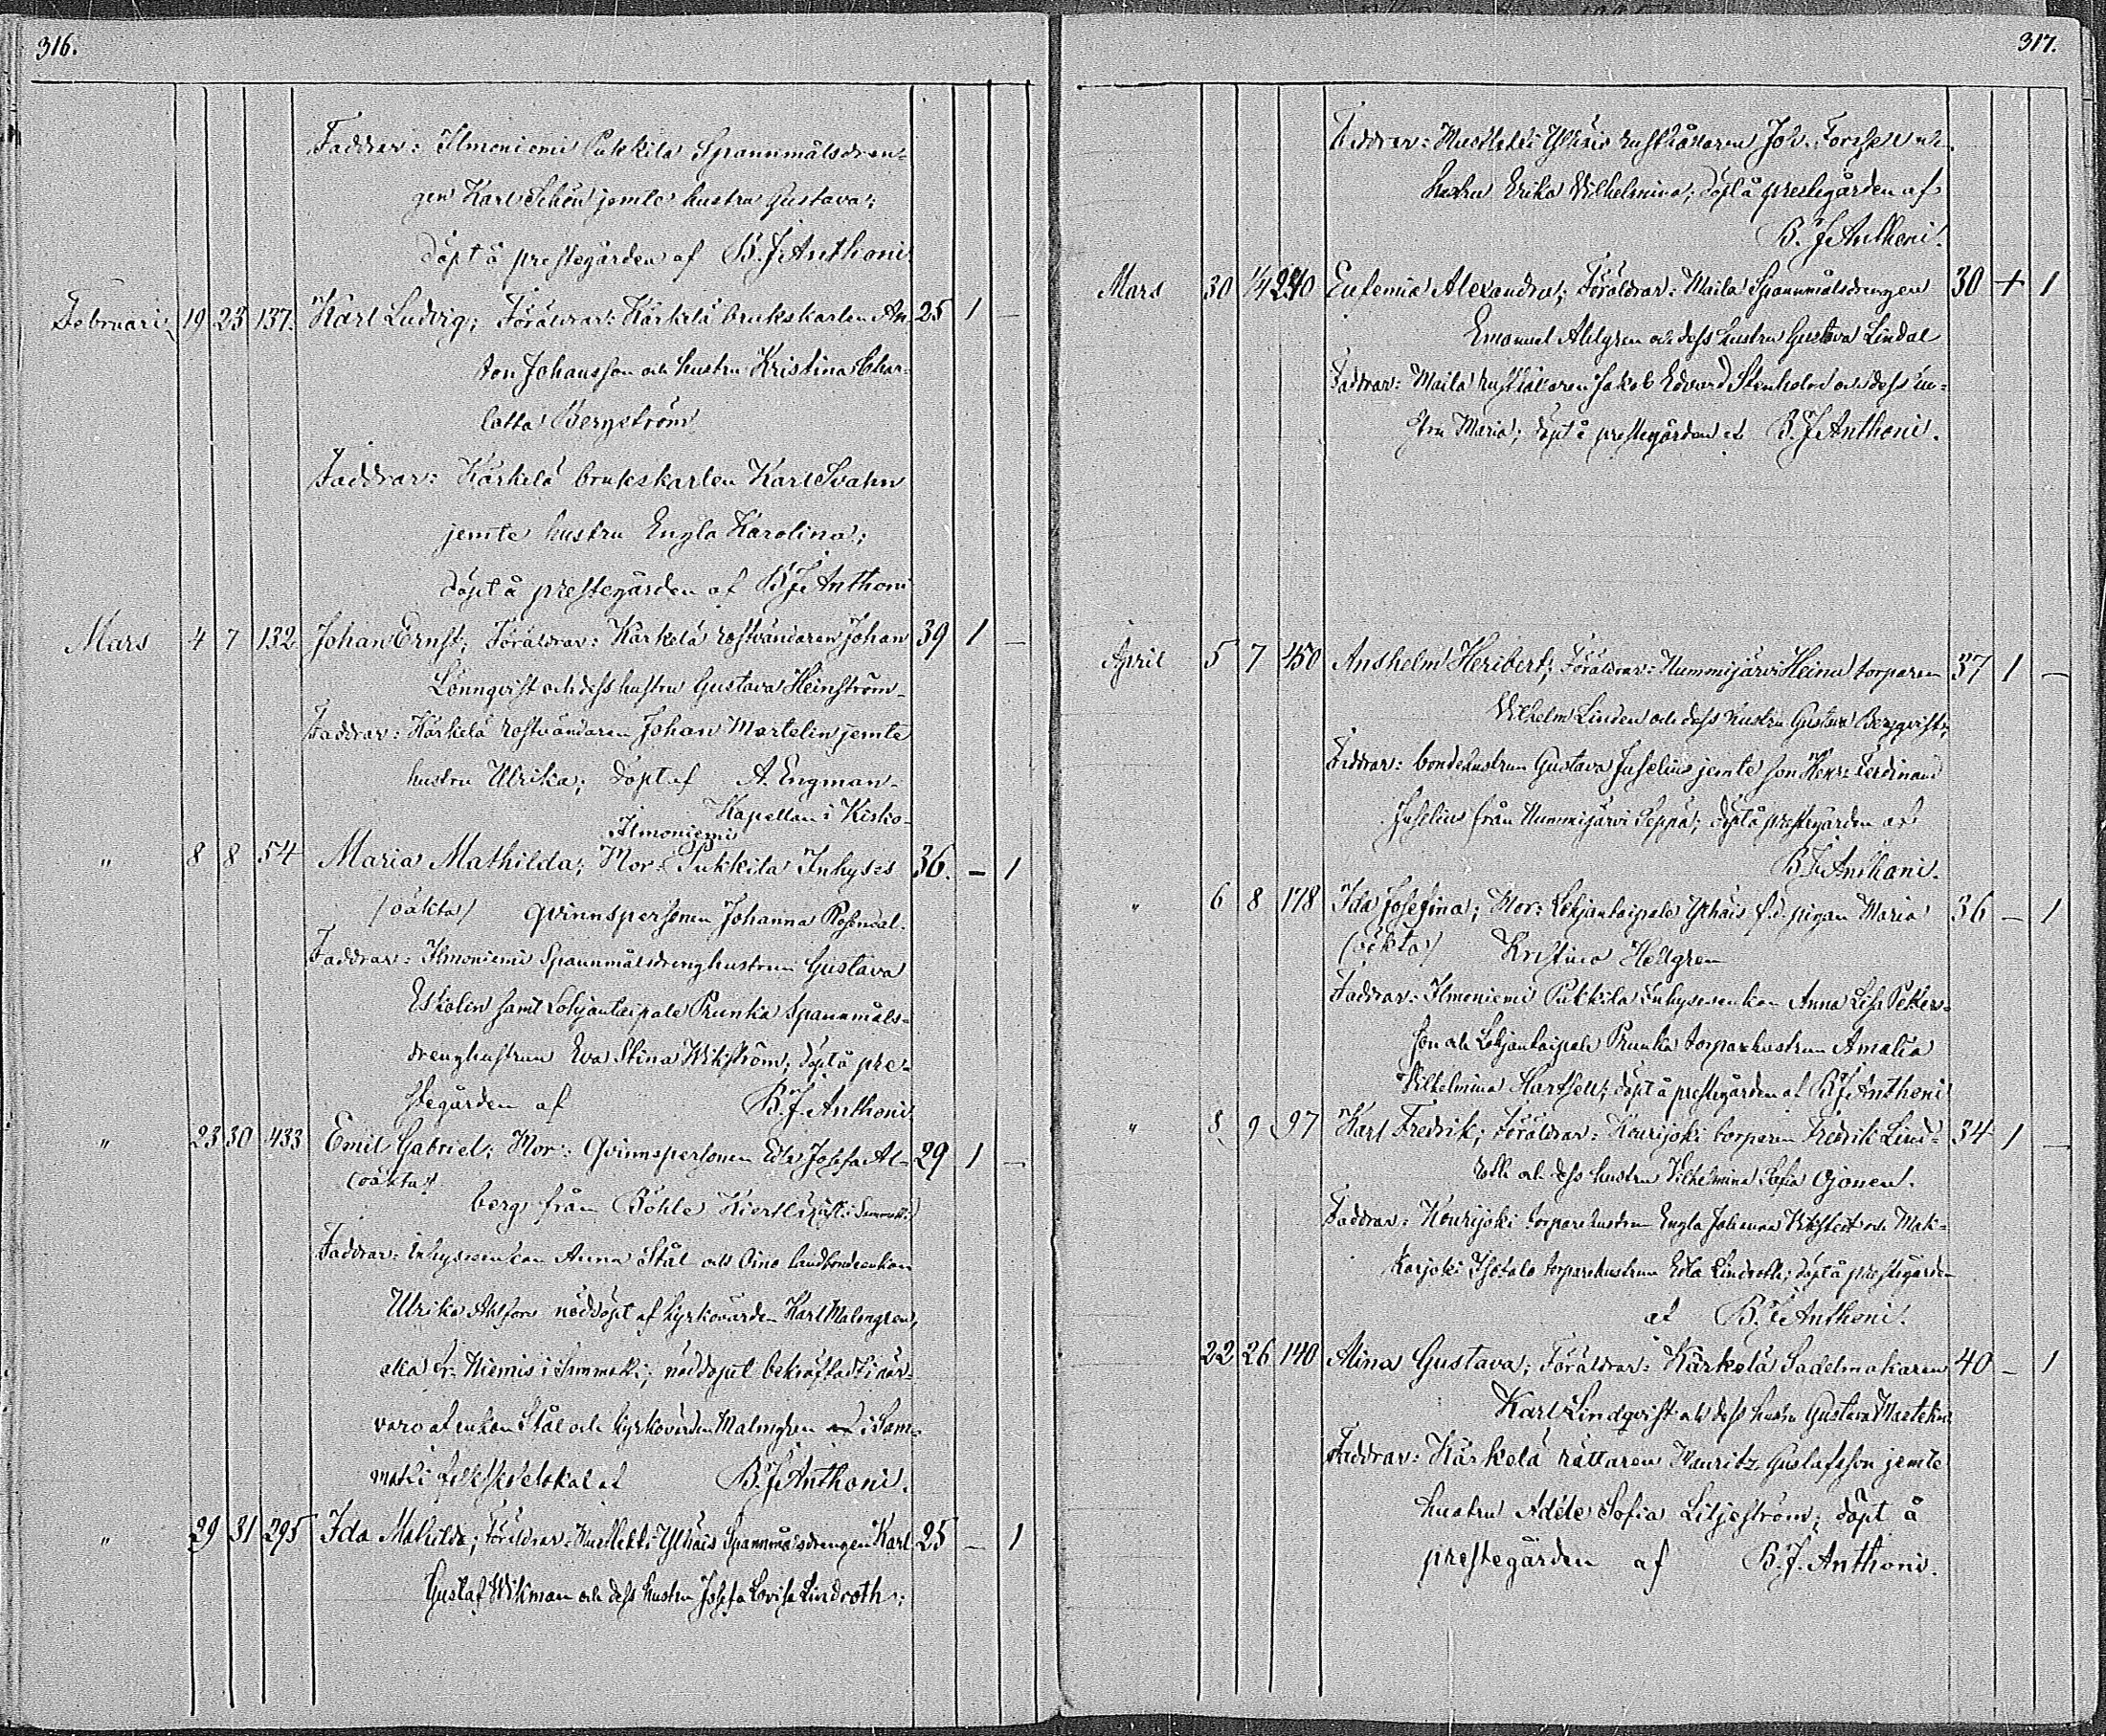 316.
Faddrar: Ilmoniemi Pukkila Spannmålsdren-
gen Karl Schön jemte hustru Gustava;
döpt å prestegården af B. J. Anthoni
Februari 19 23 137. Karl Ludvig; Föräldrar: Kärkelä brukskarlen An- 25 1 —
ton Johansson och hustru Kristina Char-
lotta Bergström
Faddrar: Kärkelä brukskarlen Karl Svahn
jemte hustru Engla Karolina;
döpt å prestegården af B. J. Anthoni
Mars 4 7 132 Johan Ernst; Föräldrar: Kärkelä rostvändaren Johan 39 1 —
Lönnqvist och dess hustru Gustava Heinström-
Faddrar: Kärkelä rostvändaren Johan Martelin jemte
hustru Ulrika; döpt af A. Engman-
Kapellan i Kisko-
Ilmoniemi
" 8 8 54 Maria Mathilda; Mor: Pukkila Inhyses 36. — 1
(oäkta) qvinnspersonen Johanna Rosendal.
Faddrar: Ilmoniemi Spannmålsdrenghustrun Gustava
Eskolin samt Lohjantaipale Prunka Spannmåls-
drenghustrun Eva Stina Wikström; döpt å pre-
stegården af B. J. Anthoni
" 23 30 433 Emil Gabriel; Mor: Qvinnspersonen Edla Josefa Al- 29 1 —
(oäkta)
berg från Böhle Kiertli
Faddrar: Inhysesenkan Anna Stål och Oino landbondeenkan
Ulrika Ahlfors nöddöpt af kyrkovärden Karl Malmgren,
Niemis i Sammatti; nöddopet bekräftadt i när-
varo af enkan Stål och kyrkovärden Malmgren i Sam-
matti af B. J. Anthoni.
" 29 31 295 Ida Mathilda; Föräldrar: Ylhäis Spannmålsdrengen Karl 25 — 1
Gustaf Wikman och dess hustru Josefa Lovisa Lindroth;
317.
Faddrar: Ylhäis rusthållaren Joh. Forssell och
hustru Erika Vilhelmina; döpt å prestegården af
B. J. Anthoni.
Mars 30 1/4 240 Eufemia Alexandra; Föräldrar: Maila Spannmålsdrengen 30 + 1
Emanuel Ahlgren och dess hustru Gustava Lindal
Faddrar: Maila rusthållaren Jakob Edvard Stenholm och dess hu-
stru Maria; döpt å prestegården af B. J. Anthoni.
April 5 7 450 Anshelm Heribert; Föräldrar: Nummijärvi Heinu torparen 37 1 —
Vilhelm Linden och dess hustru Gustava Bergqvist;
Faddrar: bondehustrun Gustava Juselius jemte son Ferdinand
Juselius från Nummijärvi Seppä; döpt å prestegården af
B. J. Anthoni.
" 6 8 178 Ida Josefina; Mor: Lohjantaipale Ylhäis f.d. pigan Maria 36 — 1
(oäkta) Kristina Hellgren
Faddrar: Ilmoniemi Pukkila Inhysesenkan Anna Lisa Petters-
son och Lohjantaipale Prunka torparehustrun Amalia
Vilhelmina Hartzell; döpt å prestegården af B. J. Anthoni
" 8 9 97 Karl Fredrik; Föräldrar: Kourijoki torparen Fredrik Lind- 34 1 —
roth och dess hustru Vilhelmina Sofia Ojonen.
Faddrar: Kourijoki torparehustrun Engla Johanna och Mak-
karjoki torparehustrun Edla Lindroth; döpt å prestegården
af B. J. Anthoni.
22 26 140 Alina Gustava; Föräldrar: Kärkelä Sadelmakaren 40 — 1
Karl Lindqvist och dess hustru Gustava Martelin
Faddrar: Kärkelä rättaren Mauritz Gustafsson jemte
hustru Adéle Sofia Liljeström; döpt å
prestegården af B. J. Anthoni.